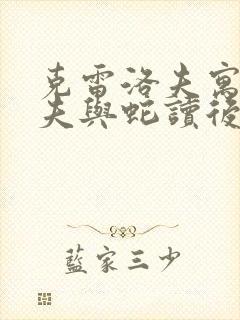 克雷洛夫寓
夫與蛇讀後
藍家三少